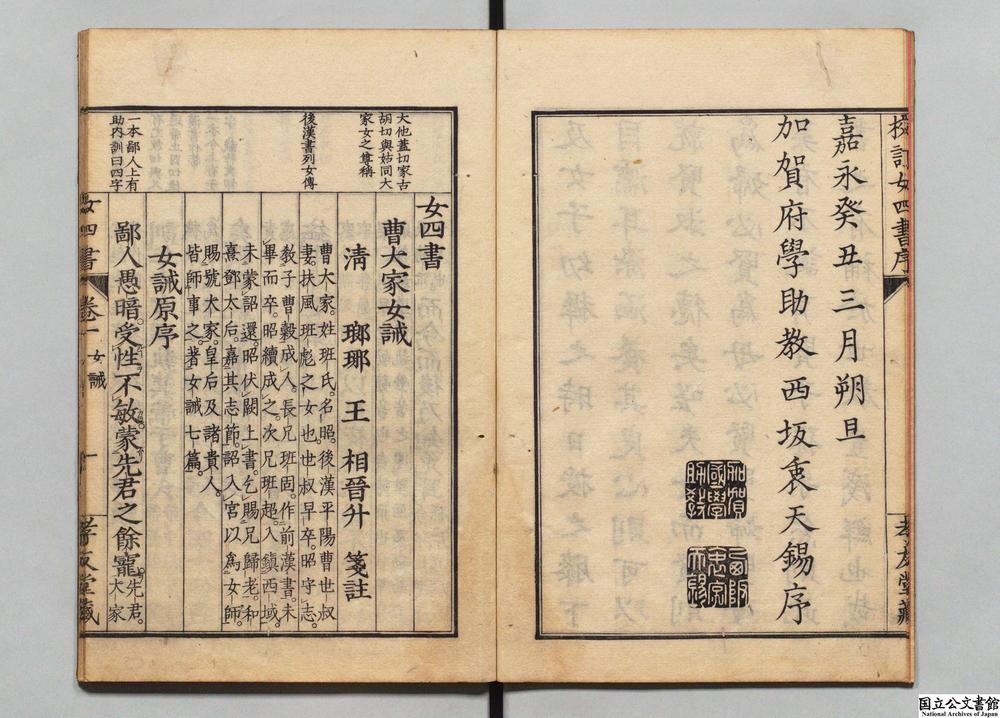 校訂女四書序
嘉永癸丑三月朔旦
加賀府學助教西坂衷天錫序
加賀
國學
助教
孝友堂藏
女四書
曹大家女誡
清 瑯琊 王 相晉升 箋註
曹大家。姓班氏。名昭。後漢平陽曹世叔
妻。扶風班彪之女也。世叔早卒。昭守志。
敎子曹糓成人。長兄班固。作前漢書。未
畢而卒。昭續成之。次兄班超。入鎮西域。
未蒙詔還。昭伏闕上書。乞賜兄歸老。和
熹鄧太后。嘉其志節。詔入宮以爲女師。
賜號大家。皇后及諸貴人。
皆師事之。著女誡七篇。
女誡原序
鄙人愚暗。受性不敏。蒙先君之餘寵。先君。
大家
大他蓋切家古
胡切與姑同大
家女之尊稱
後漢書列女傳
一本鄙人上有
助内訓曰四字
女四書 卷一 女誡 一 孝友堂藏
国立公文書館
National Archives of Japan